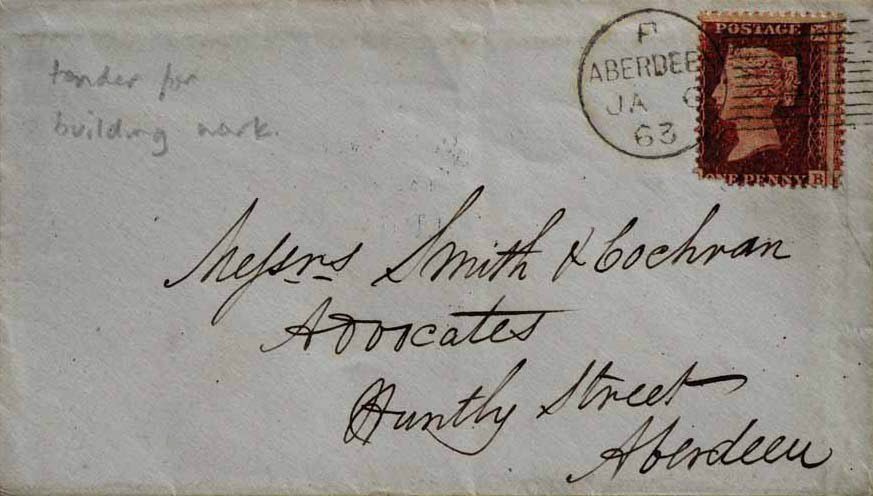 tender for
building work.
P
ABERDEE
JA 6
63
POSTAGE
ONE PENNY B
Messrs Smith & Cochran
Advocates
Huntly Street
Aberdeen